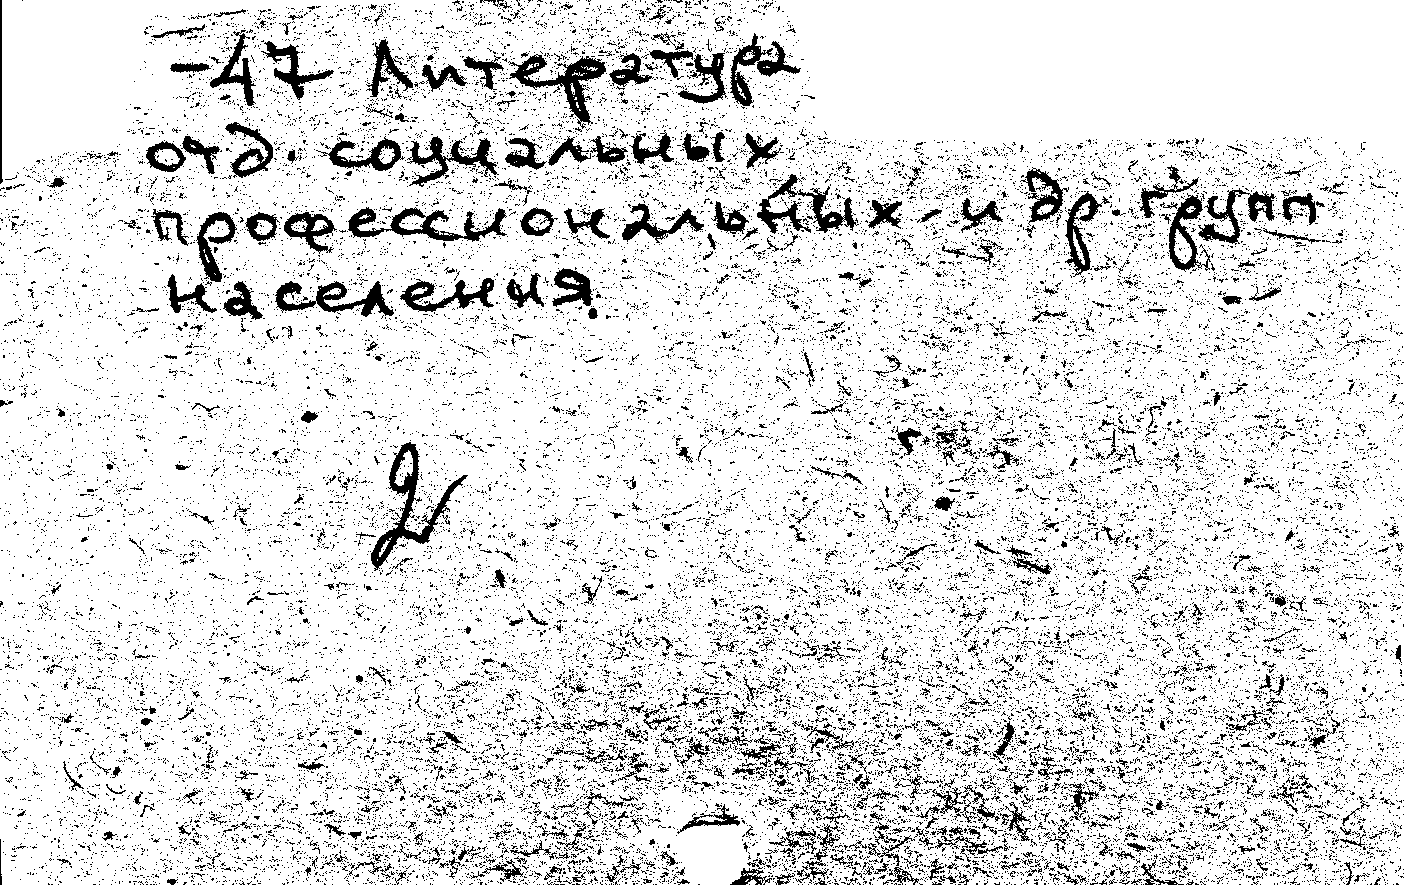 -47 Литература
отд. социальных
профессиональных и др. групп
населения.